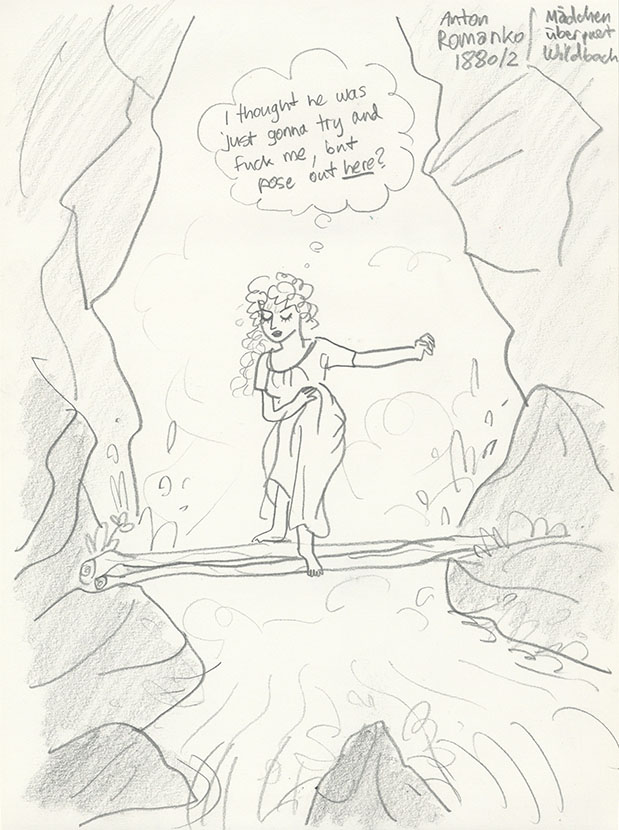 Anton
Romanko
1880/2
Mädchen
überquert
Wildbach
I thought he was
just gonna try and
fuck me, but
pose out here?